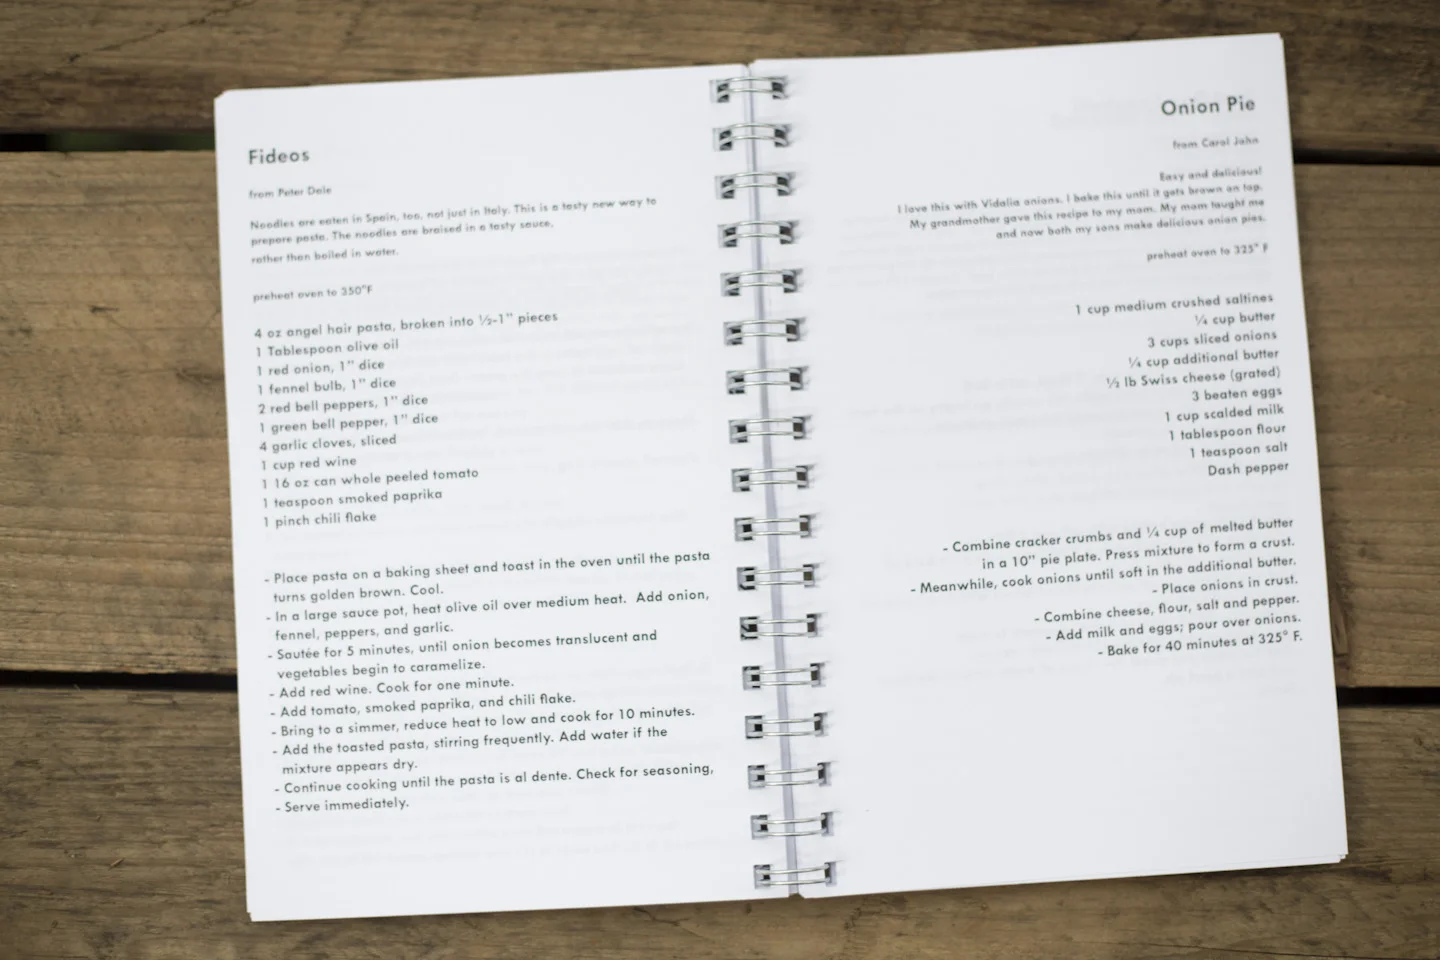 Fideos
from Peter Dale
Noodles are eaten in Spain, too, not just in Italy. This is a tasty new way to
prepare pasta. The noodles are braised in a tasty sauce,
rather than boiled in water.
preheat oven to 350°F
4 oz angel hair pasta, broken into ½-1" pieces
1 Tablespoon olive oil
1 red onion, 1" dice
1 fennel bulb, 1" dice
2 red bell peppers, 1" dice
1 green bell pepper, 1" dice
4 garlic cloves, sliced
1 cup red wine
1 16 oz can whole peeled tomato
1 teaspoon smoked paprika
1 pinch chili flake
- Place pasta on a baking sheet and toast in the oven until the pasta
turns golden brown. Cool.
- In a large sauce pot, heat olive oil over medium heat. Add onion,
fennel, peppers, and garlic.
- Sautée for 5 minutes, until onion becomes translucent and
vegetables begin to caramelize.
- Add red wine. Cook for one minute.
- Add tomato, smoked paprika, and chili flake.
- Bring to a simmer, reduce heat to low and cook for 10 minutes.
- Add the toasted pasta, stirring frequently. Add water if the
mixture appears dry.
- Continue cooking until the pasta is al dente. Check for seasoning,
- Serve immediately.
Onion Pie
from Carol John
Easy and delicious!
I love this with Vidalia onions. I bake this until it gets brown on top.
My grandmother gave this recipe to my mom. My mom taught me
and now both my sons make delicious onion pies.
preheat oven to 325° F
1 cup medium crushed saltines
¼ cup butter
3 cups sliced onions
¼ cup additional butter
½ lb Swiss cheese (grated)
3 beaten eggs
1 cup scalded milk
1 tablespoon flour
1 teaspoon salt
Dash pepper
- Combine cracker crumbs and ¼ cup of melted butter
in a 10" pie plate. Press mixture to form a crust.
- Meanwhile, cook onions until soft in the additional butter.
- Place onions in crust.
- Combine cheese, flour, salt and pepper.
- Add milk and eggs; pour over onions.
- Bake for 40 minutes at 325° F.